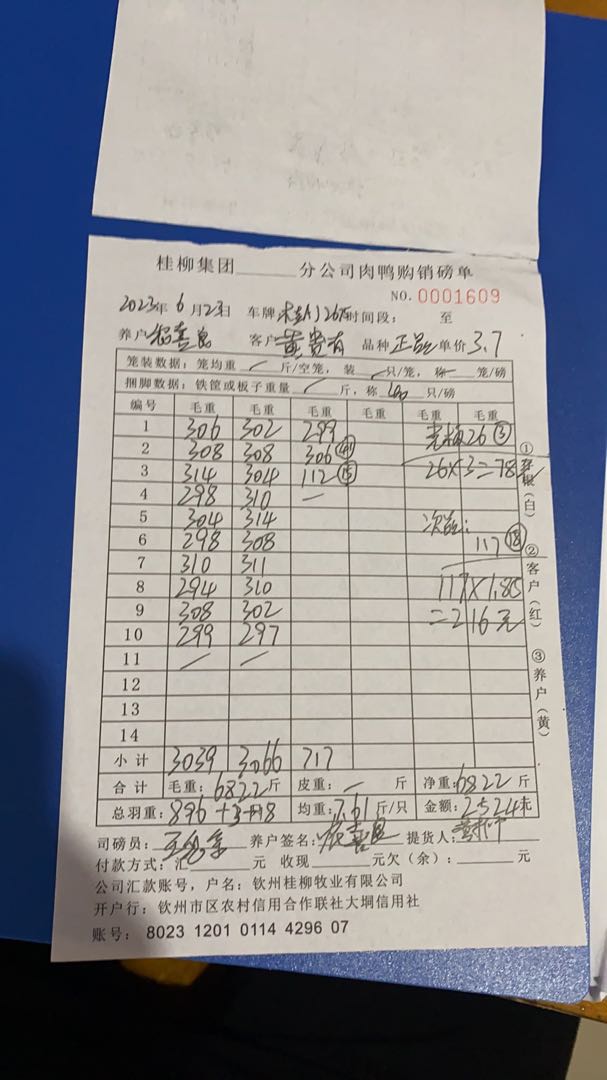 桂柳集团______分公司肉鸭购销磅单
NO. 0001609
2023年 6 月 23日 车牌 时间段： 至
养户 客户 黄贵有 品种 正品 单价 3.7
笼装数据：笼均重 / 斤/空笼，装 / 只/笼，称 笼/磅
捆脚数据：铁筐或板子重量 / 斤，称 只/磅
编号 毛重 毛重 毛重 毛重 毛重 毛重
1 306 302 299 26 ③
2 308 308 306
3 314 304 112 ⑮ 26×3=78
4 298 310 —
5 304 314 次品：
6 298 308 117 ⑱
7 310 311
8 294 310 117×1.85
9 308 302 =216元
10 299 297
11 / /
12
13
14
小计 3039 3066 717
合计 毛重：6822斤 皮重： — 斤 净重：6822斤
总羽重：896+3+18 均重：7.61斤/只 金额：25241元
司磅员： 养户签名： 提货人：
付款方式：汇______元 收现______元欠（余）：______元
公司汇款账号，户名：钦州桂柳牧业有限公司
开户行：钦州市区农村信用合作联社大垌信用社
账号：8023 1201 0114 4296 07
①
（白）
②客户（红）
③养户（黄）